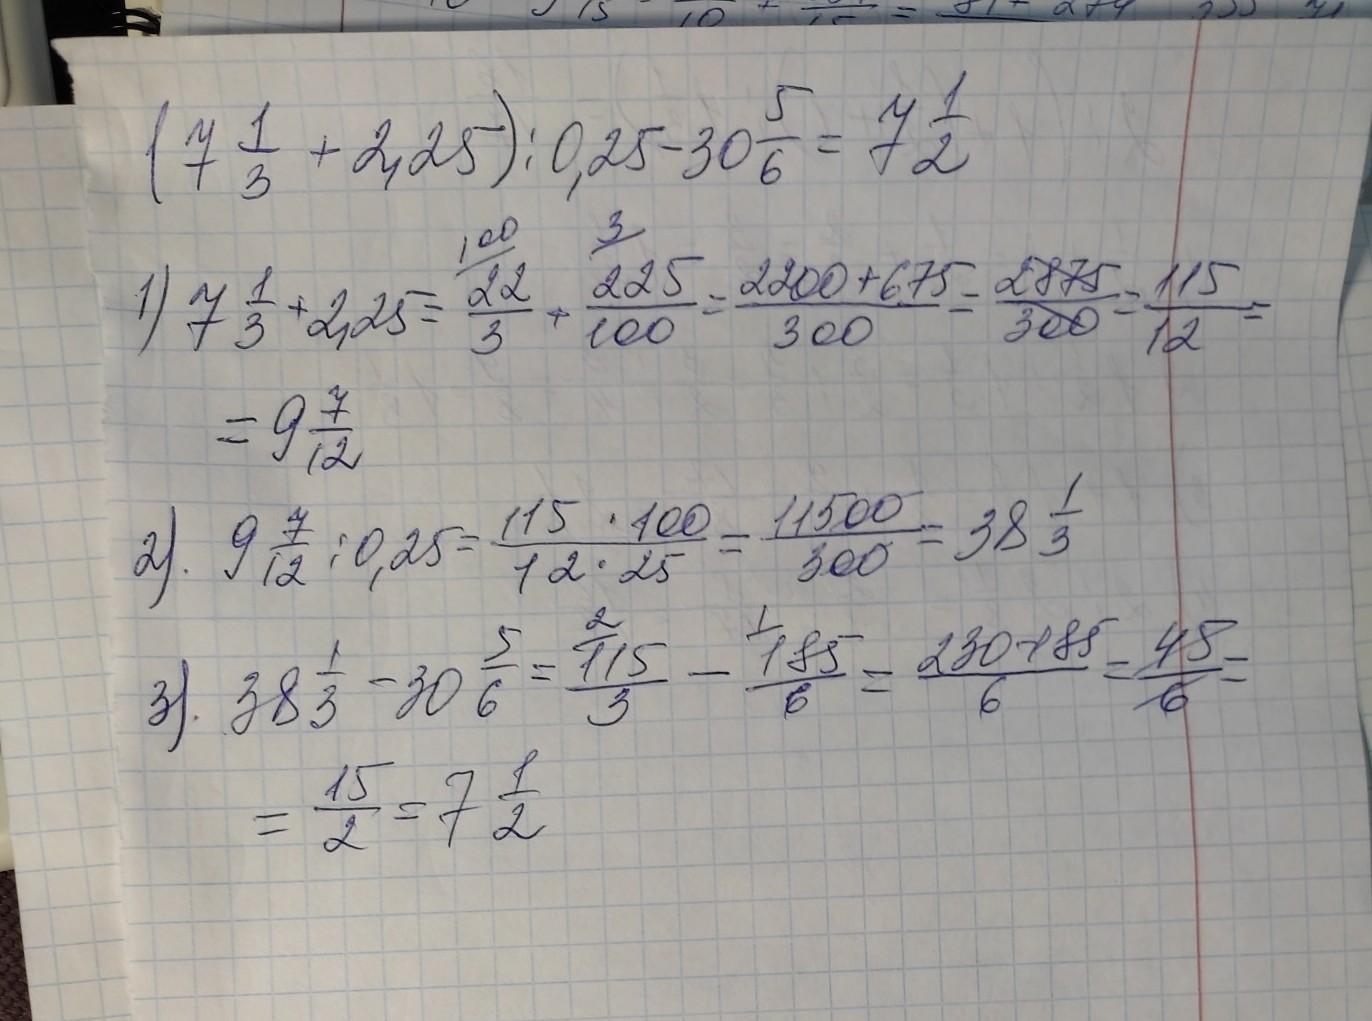 (7 1/3 + 2,25) : 0,25 - 30 5/6 = 7 1/2
1) 7 1/3 + 2,25 = 22/3 (100 + 225/100 (3 = 2200+675/300 = 2875/300 = 115/12 =
= 9 7/12
2). 9 7/12 : 0,25 = 115 · 100/12 · 25 = 11500/300 = 38 1/3
3). 38 1/3 - 30 5/6 = 115/3 (2 - 185/6 (1 = 230-185/6 = 45/6 =
= 15/2 = 7 1/2